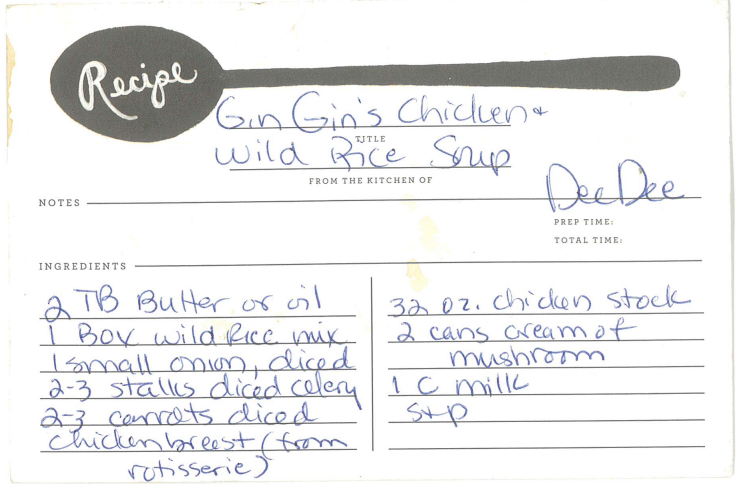 Recipe
Gin Gin's Chicken +
TITLE
Wild Rice Soup
FROM THE KITCHEN OF
DeeDee
NOTES
PREP TIME:
TOTAL TIME:
INGREDIENTS
2 TB Butter or oil
1 Box wild Rice mix
1 small onion, diced
2-3 stalks diced celery
2-3 carrots diced
chicken breast (from
rotisserie)
32 oz. chicken stock
2 cans cream of
mushroom
1 C milk
s+p